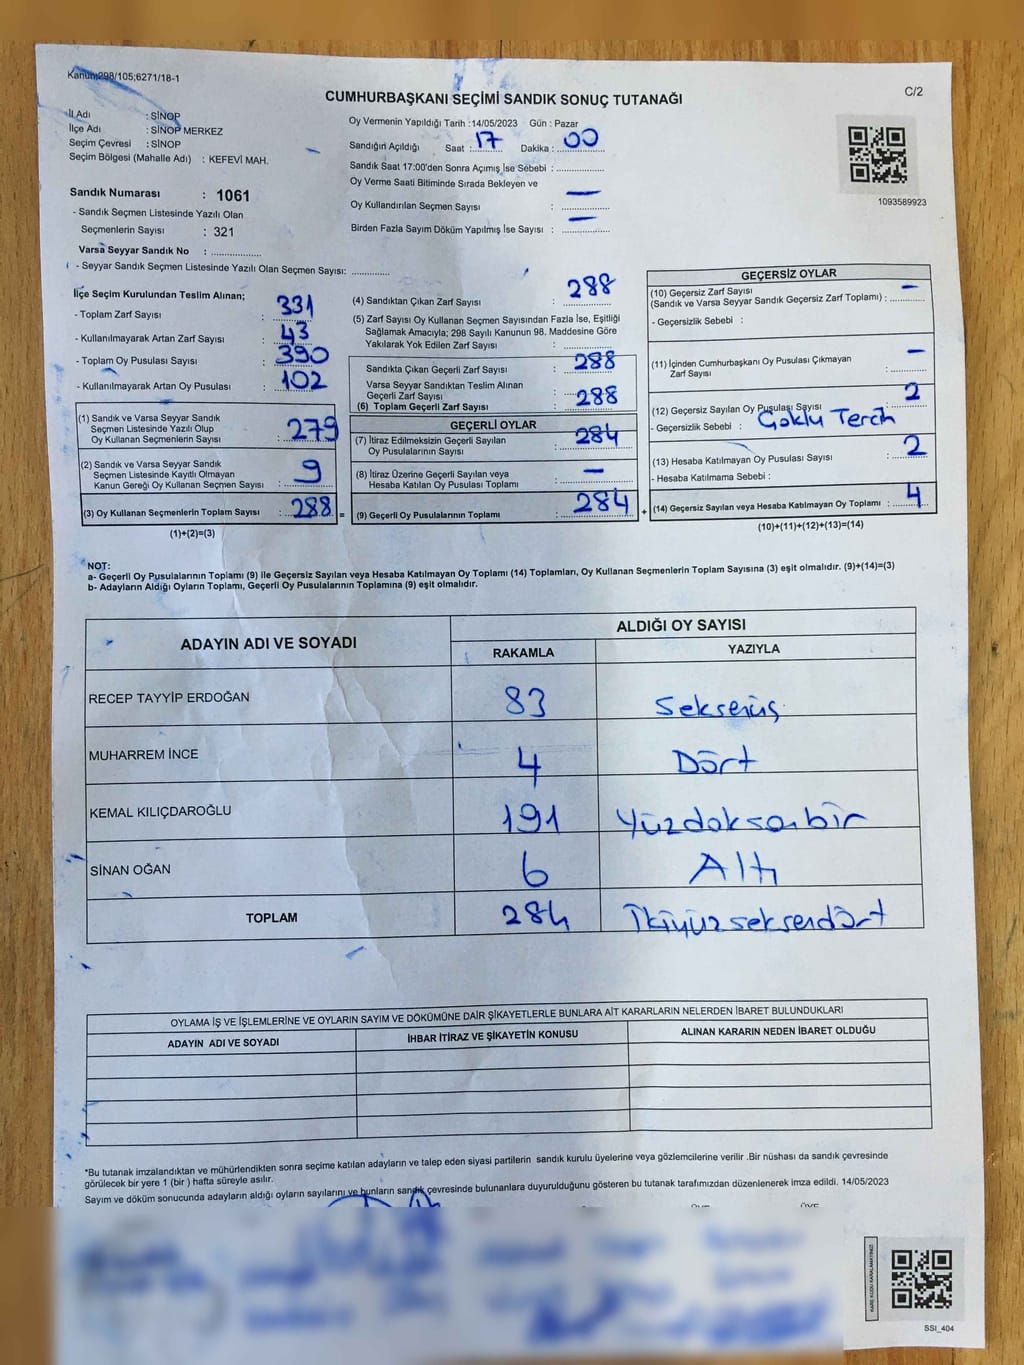 Kanun:298/105;6271/18-1
C/2
CUMHURBAŞKANI SEÇİMİ SANDIK SONUÇ TUTANAĞI
İl Adı : SİNOP
İlçe Adı : SİNOP MERKEZ
Seçim Çevresi : SİNOP
Seçim Bölgesi (Mahalle Adı) : KEFEVİ MAH.
Sandık Numarası : 1061
- Sandık Seçmen Listesinde Yazılı Olan
Seçmenlerin Sayısı : 321
Varsa Seyyar Sandık No : ..................
- Seyyar Sandık Seçmen Listesinde Yazılı Olan Seçmen Sayısı: ..............
Oy Vermenin Yapıldığı Tarih :14/05/2023 Gün : Pazar
Sandığın Açıldığı Saat : 17 Dakika : 00
Sandık Saat 17:00'den Sonra Açımış İse Sebebi : ................
Oy Verme Saati Bitiminde Sırada Bekleyen ve
Oy Kullandırılan Seçmen Sayısı : —
Birden Fazla Sayım Döküm Yapılmış İse Sayısı : —
1093589923
İlçe Seçim Kurulundan Teslim Alınan;
- Toplam Zarf Sayısı : 331
- Kullanılmayarak Artan Zarf Sayısı : 43
- Toplam Oy Pusulası Sayısı : 390
- Kullanılmayarak Artan Oy Pusulası : 102
(1) Sandık ve Varsa Seyyar Sandık
Seçmen Listesinde Yazılı Olup
Oy Kullanan Seçmenlerin Sayısı : 279
(2) Sandık ve Varsa Seyyar Sandık
Seçmen Listesinde Kayıtlı Olmayan
Kanun Gereği Oy Kullanan Seçmen Sayısı : 9
(3) Oy Kullanan Seçmenlerin Toplam Sayısı : 288 =
(1)+(2)=(3)
(4) Sandıktan Çıkan Zarf Sayısı : 288
(5) Zarf Sayısı Oy Kullanan Seçmen Sayısından Fazla İse, Eşitliği
Sağlamak Amacıyla; 298 Sayılı Kanunun 98. Maddesine Göre
Yakılarak Yok Edilen Zarf Sayısı : ..............
Sandıkta Çıkan Geçerli Zarf Sayısı : 288
Varsa Seyyar Sandıktan Teslim Alınan
Geçerli Zarf Sayısı :
(6) Toplam Geçerli Zarf Sayısı : 288
GEÇERLİ OYLAR
(7) İtiraz Edilmeksizin Geçerli Sayılan
Oy Pusulalarının Sayısı : 284
(8) İtiraz Üzerine Geçerli Sayılan veya
Hesaba Katılan Oy Pusulası Toplamı : —
(9) Geçerli Oy Pusulalarının Toplamı : 284 +
GEÇERSİZ OYLAR
(10) Geçersiz Zarf Sayısı
(Sandık ve Varsa Seyyar Sandık Geçersiz Zarf Toplamı) : —
- Geçersizlik Sebebi :
(11) İçinden Cumhurbaşkanı Oy Pusulası Çıkmayan
Zarf Sayısı : —
(12) Geçersiz Sayılan Oy Pusulası Sayısı : 2
- Geçersizlik Sebebi : Çoklu Tercih
(13) Hesaba Katılmayan Oy Pusulası Sayısı : 2
- Hesaba Katılmama Sebebi :
(14) Geçersiz Sayılan veya Hesaba Katılmayan Oy Toplamı : 4
(10)+(11)+(12)+(13)=(14)
NOT:
a- Geçerli Oy Pusulalarının Toplamı (9) ile Geçersiz Sayılan veya Hesaba Katılmayan Oy Toplamı (14) Toplamları, Oy Kullanan Seçmenlerin Toplam Sayısına (3) eşit olmalıdır. (9)+(14)=(3)
b- Adayların Aldığı Oyların Toplamı, Geçerli Oy Pusulalarının Toplamına (9) eşit olmalıdır.
ADAYIN ADI VE SOYADI
ALDIĞI OY SAYISI
RAKAMLA YAZIYLA
RECEP TAYYİP ERDOĞAN 83 Seksenüç
MUHARREM İNCE 4 Dört
KEMAL KILIÇDAROĞLU 191 Yüzdoksanbir
SİNAN OĞAN 6 Altı
TOPLAM 284 İkiyüzseksendört
OYLAMA İŞ VE İŞLEMLERİNE VE OYLARIN SAYIM VE DÖKÜMÜNE DAİR ŞİKAYETLERLE BUNLARA AİT KARARLARIN NELERDEN İBARET BULUNDUKLARI
ADAYIN ADI VE SOYADI İHBAR İTİRAZ VE ŞİKAYETİN KONUSU ALINAN KARARIN NEDEN İBARET OLDUĞU
*Bu tutanak imzalandıktan ve mühürlendikten sonra seçime katılan adayların ve talep eden siyasi partilerin sandık kurulu üyelerine veya gözlemcilerine verilir .Bir nüshası da sandık çevresinde
görülecek bir yere 1 (bir ) hafta süreyle asılır.
Sayım ve döküm sonucunda adayların aldığı oyların sayılarını ve bunların sandık çevresinde bulunanlara duyurulduğunu gösteren bu tutanak tarafımızdan düzenlenerek imza edildi. 14/05/2023
KARE KODU KARALAMAYINIZ!
SSI_404